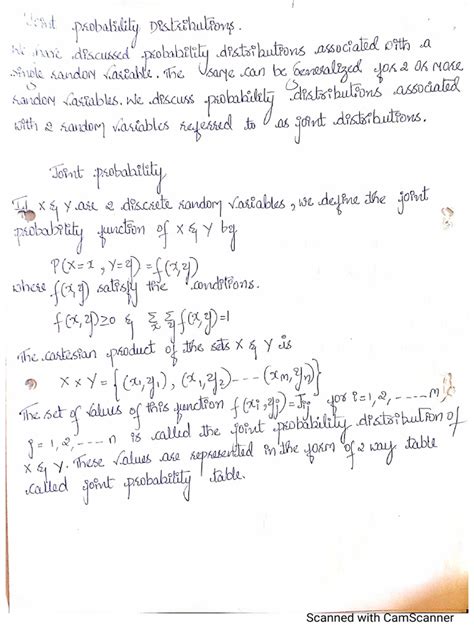 Joint probability Distributions.
We have discussed probability distributions associated with a
single random variable. The same can be Generalized for 2 or more
random variables. We discuss probability distributions associated
with 2 random variables referred to as joint distributions.
Joint probability
If X & Y are 2 discrete random variables, we define the joint
probability function of X & Y by
P(X=x, Y=y) = f(x,y)
where f(x,y) satisfy the conditions.
f(x,y) ≥ 0 & Σx Σy f(x,y) = 1
The cartesian product of the sets X & Y is
X × Y = {(x1,y1), (x1,y2) ---- (xm,yn)}
The set of values of this function f(xi,yj) = Jij for i=1,2,.....m,
j = 1,2,.....n is called the joint probability distribution of
X & Y. These values are represented in the form of 2 way table
called joint probability table.
Scanned with CamScanner